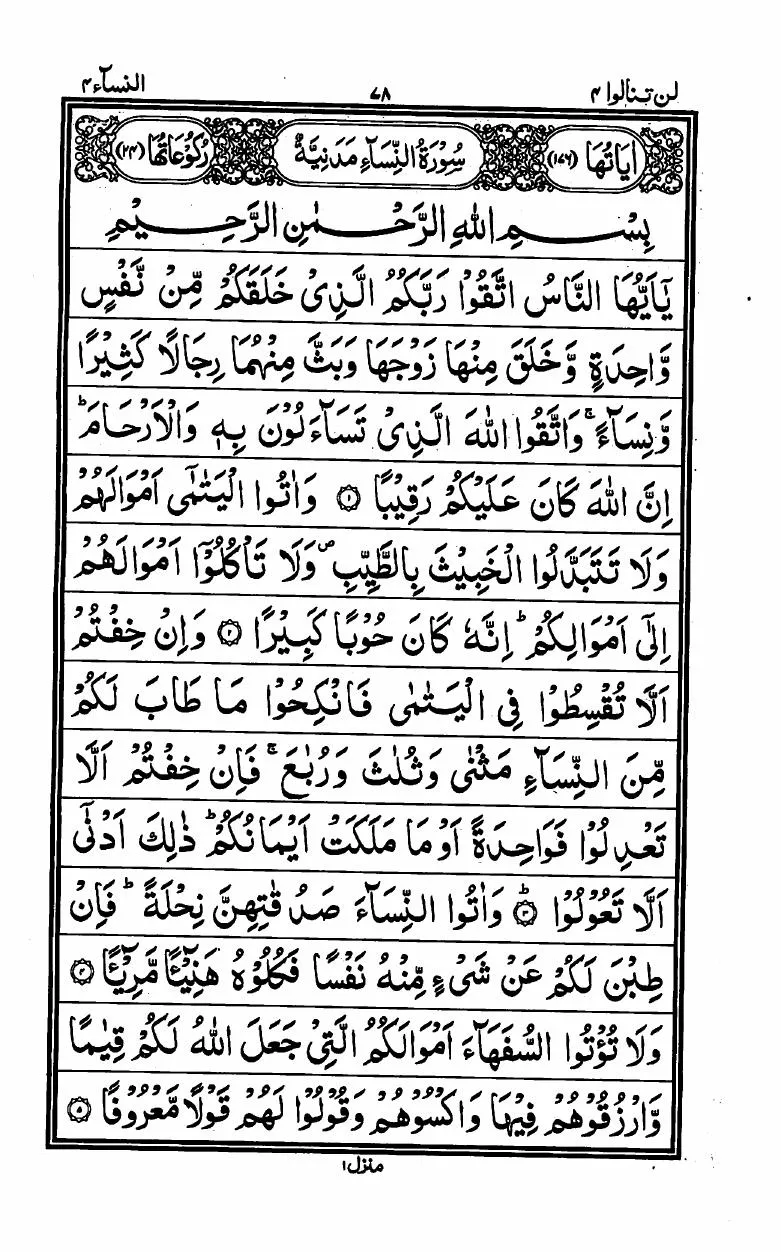 لن تنالوا ۴ ۷۸ النسآء ۴
اٰیَاتُهَا (۱۷۶) سُوْرَةُ النِّسَآءِ مَدَنِیَّةٌ رُكُوْعَاتُهَا (۲۴)
بِسْمِ اللّٰهِ الرَّحْمٰنِ الرَّحِیْمِ
یٰۤاَیُّهَا النَّاسُ اتَّقُوْا رَبَّكُمُ الَّذِیْ خَلَقَكُمْ مِّنْ نَّفْسٍ
وَّاحِدَةٍ وَّخَلَقَ مِنْهَا زَوْجَهَا وَبَثَّ مِنْهُمَا رِجَالًا كَثِیْرًا
وَّنِسَآءً ۚ وَاتَّقُوا اللّٰهَ الَّذِیْ تَسَآءَلُوْنَ بِهٖ وَالْاَرْحَامَ ؕ
اِنَّ اللّٰهَ كَانَ عَلَیْكُمْ رَقِیْبًا ۱ وَاٰتُوا الْیَتٰمٰۤی اَمْوَالَهُمْ
وَلَا تَتَبَدَّلُوا الْخَبِیْثَ بِالطَّیِّبِ ۪ وَلَا تَاْكُلُوْۤا اَمْوَالَهُمْ
اِلٰۤی اَمْوَالِكُمْ ؕ اِنَّهٗ كَانَ حُوْبًا كَبِیْرًا ۲ وَاِنْ خِفْتُمْ
اَلَّا تُقْسِطُوْا فِی الْیَتٰمٰی فَانْكِحُوْا مَا طَابَ لَكُمْ
مِّنَ النِّسَآءِ مَثْنٰی وَثُلٰثَ وَرُبٰعَ ۚ فَاِنْ خِفْتُمْ اَلَّا
تَعْدِلُوْا فَوَاحِدَةً اَوْ مَا مَلَكَتْ اَیْمَانُكُمْ ؕ ذٰلِكَ اَدْنٰۤی
اَلَّا تَعُوْلُوْا ۳ؕ وَاٰتُوا النِّسَآءَ صَدُقٰتِهِنَّ نِحْلَةً ؕ فَاِنْ
طِبْنَ لَكُمْ عَنْ شَیْءٍ مِّنْهُ نَفْسًا فَكُلُوْهُ هَنِیْٓـًٔا مَّرِیْٓـًٔا ۴
وَلَا تُؤْتُوا السُّفَهَآءَ اَمْوَالَكُمُ الَّتِیْ جَعَلَ اللّٰهُ لَكُمْ قِیٰمًا
وَّارْزُقُوْهُمْ فِیْهَا وَاكْسُوْهُمْ وَقُوْلُوْا لَهُمْ قَوْلًا مَّعْرُوْفًا ۵
منزل ۱